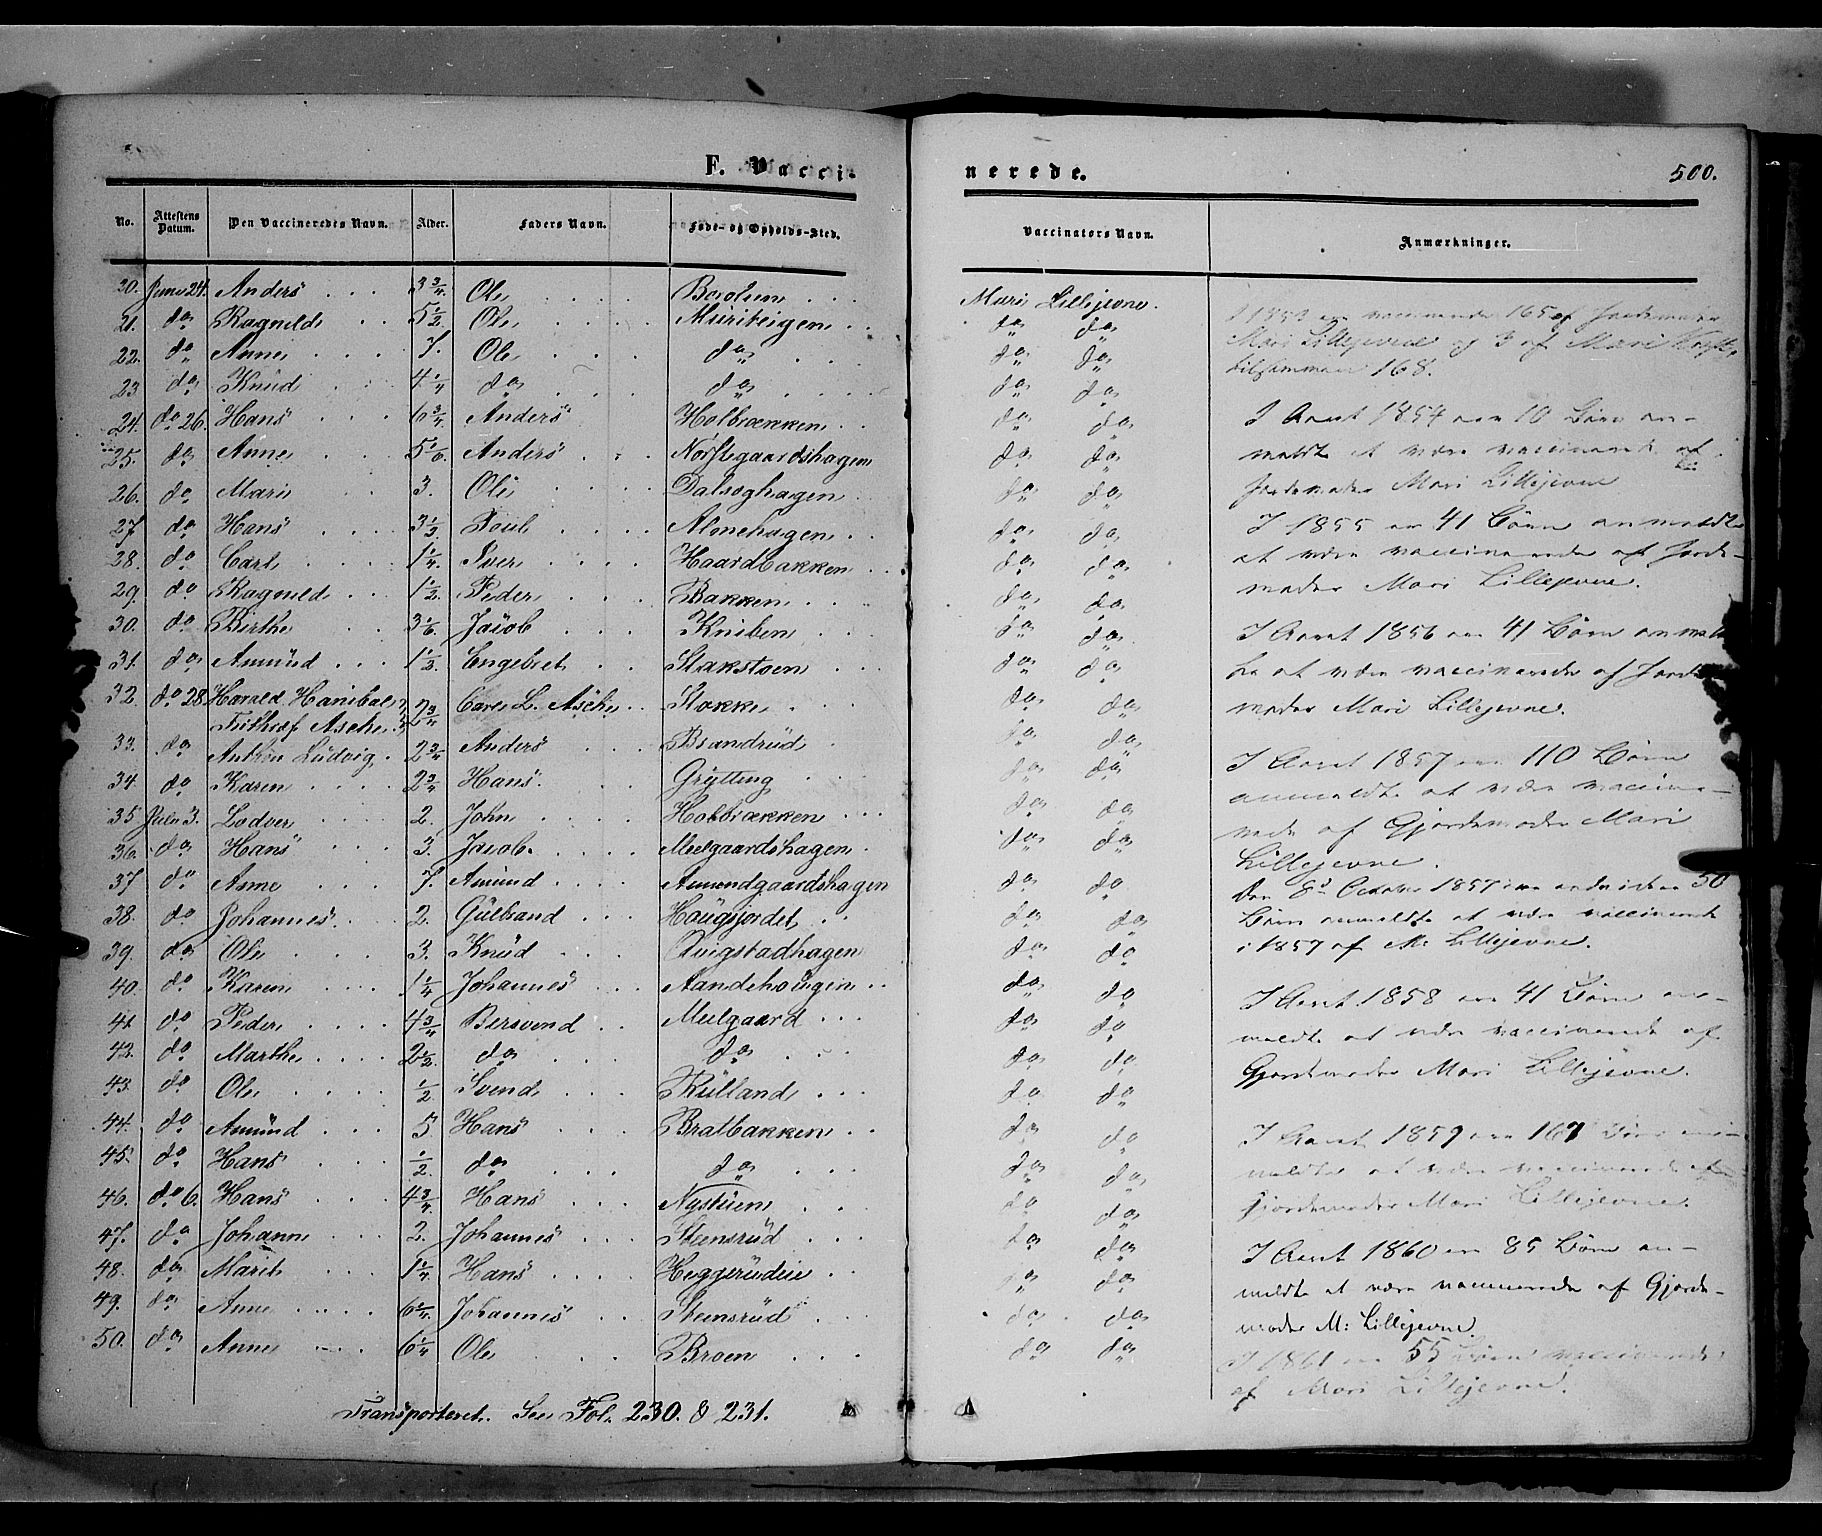 F. Vacci-
nerede.
500.
No. Attestens Datum. Den Vaccineredes Navn. Alder. Faders Navn. Føde- og Opholds-Sted. Vaccinators Navn. Anmærkninger.
20. Juni 24. Anders 3 3/4. Ole Mari Lillejevne.
21. do Ragnild 5 1/2 Ole do do
22. do Anne 7. Ole do do do
23 do Knud 4 1/4 do do do do
24. do 26. Hans 6 3/4 Anders Holbrækken do do
25. do Anne 5 Anders Norstegaardshagen do do
26. do Mari 3. Ole Dalseghagen do do
27. do Hans Poul Almehagen do do
28. do Carl 1 1/4. Iver Haardbakken do do
29. do Ragnild 1 1/2. Peder Bakken do do
30. do Birthe 3 1/6. Jacob Kniben do do
31. do Amund Engebret Stakstoen do do
32. do 28. Harald Hanibal Frithiof Asche 2 3/4 Asche Stokke do do
33. do Ludvig 2 3/4 Anders Brandrud do do
34. do Karen 2 3/4 Hans Grytting do do
35 Juli 3. Lodver 2. John Holbrækken do do
36. do Hans 3. Jacob Melgaardshagen do do
37 do Anne 7. Amund Amundgaardshagen do do
38. do Johannes 2. Gulbrand Haugjordet do do
39. do Ole 3. Knud Qvigstadhagen do do
40. do Karen 1 1/4 Johannes Aandehougen do do
41 do Peder 4 3/4 Bersvend Melgaard do do
42. do Marthe 2 1/2. do do do do
43. do Ole 1/2 Svend Kulland do do
44. do Amund 5 Hans Bratbakken do do
45. do Hans 1/2. do do do do
46. do 6. Hans 4 3/4. Hans Nystuen do do
47. do Johanne 2. Johannes Steensrud do do
48. do Marit 1 1/4 Hans Heggerudeie do do
49. do Anne Johannes Steensrud do do
50. do Anne 6 1/4 Ole Broen do do
Transporteret. See Fol. 230. & 231.
I 1853 ere vaccinerede 165 af Jordemoder
Mari Lillejevne og 3 af Mari
tilsammen 168.
I Aaret 1854 ere 10 Børn an-
meldte at være vaccinerede af
Jordemoder Mari Lillejevne
I 1855 er 41 Børn anmeldte
at være vaccinerede af Jorde-
moder Mari Lillejevne.
I Aaret 1856 ere 41 Børn anmeld-
te at være vaccinerede af Jorde-
moder Mari Lillejevne.
I Aaret 1857 ere 110 Børn
anmeldte at være vaccine-
rede af Gjordemoder Mari
Lillejevne.
Den 8d October 1857 ere endvidere 50
Børn anmeldte at være vaccinerede
i 1857 af M: Lillejevne.
I Aaret 1858 ere 41 Børn an-
meldte at være vaccinerede af
Gjordemoder Mari Lillejevne.
I Aaret 1859 ere 167 Børn an-
meldte at være vaccinerede af
Gjordemoder Mari Lillejevne.
I Aaret 1860 ere 85 Børn an-
meldte at være vaccinerede af Gjorde-
moder M: Lillejevne.
I 1861 ere 55 Børn vaccinerede
af Mari Lillejevne.